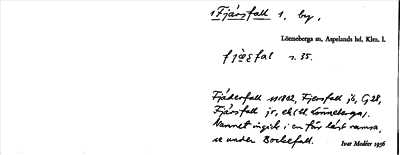 1 Fjärsfall 1. by,
Lönneberga sn, Aspelands hd, Klm. l.
s. 35.
Fjäderfall 1802, Fjersfall jb, G 28,
Fjärsfall jr, ek (tl Lönneberga).
Namnet ingår i en för låst ramsa,
se under Bockefall.
Ivar Modéer 1936